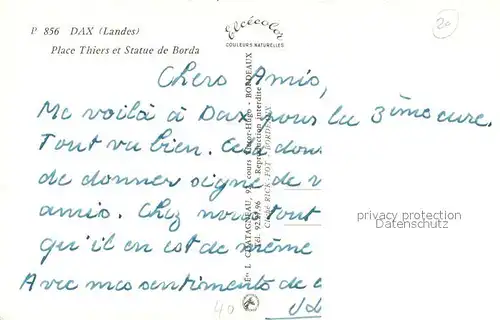 P 856 DAX (Landes)
Place Thiers et Statue de Borda
Elcécolor
COULEURS NATURELLES
20
Chers Amis,
Me voilà à Dax pour la 3ème cure.
Tout va bien. Cela
de donner signe de v
amis. Chez nous tout
qu'il en est de même
Avec mes sentiments de
40
L. CHATAGNEAU, cours Victor-Hugo - BORDEAUX
Tél. 92.97.96 Reproduction interdite
Cliché RICK-FOT - BORDEAUX
privacy protection
Datenschutz